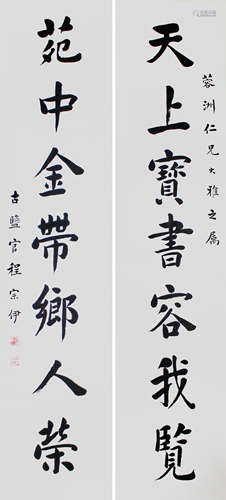 天上寶書容我覧
蓉洲仁兄大雅之屬
苑中金帶鄉人榮
古鹽官程宗伊